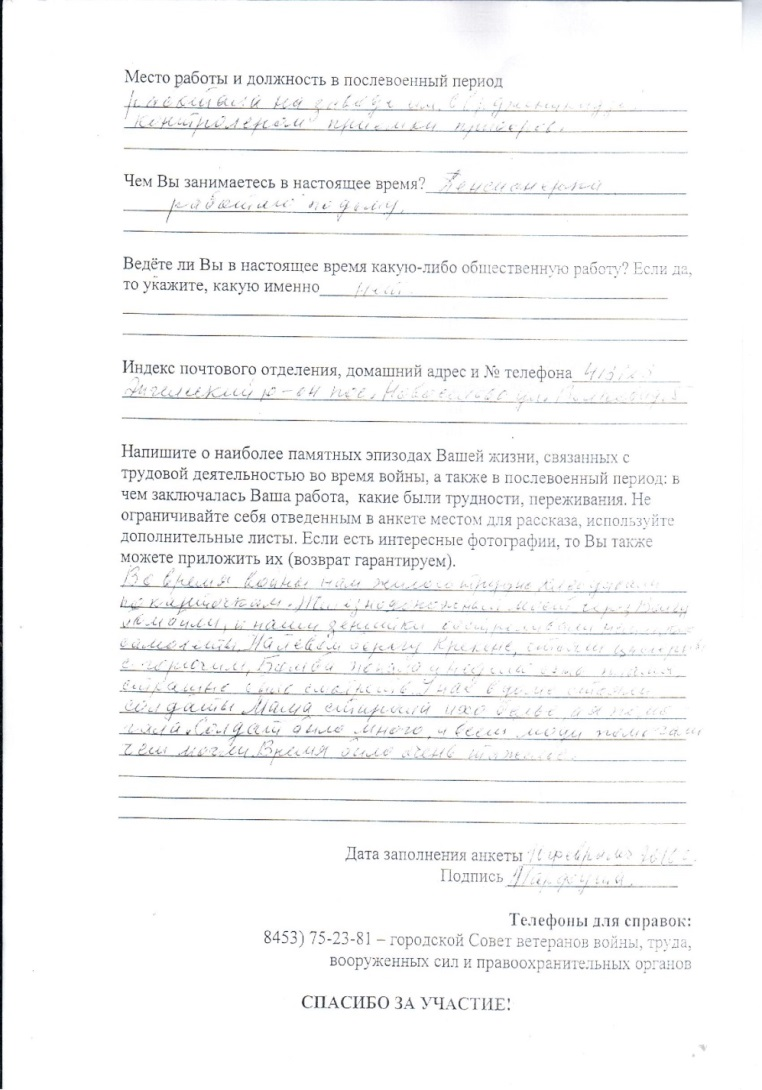 Место работы и должность в послевоенный период
работала на заводе им.
контролером приемки приборов.
Чем Вы занимаетесь в настоящее время? Пенсионерка
работаю по дому.
Ведёте ли Вы в настоящее время какую-либо общественную работу? Если да,
то укажите, какую именно нет.
Индекс почтового отделения, домашний адрес и № телефона
Энгельский р-он пос. ул.
Напишите о наиболее памятных эпизодах Вашей жизни, связанных с
трудовой деятельностью во время войны, а также в послевоенный период: в
чем заключалась Ваша работа, какие были трудности, переживания. Не
ограничивайте себя отведенным в анкете местом для рассказа, используйте
дополнительные листы. Если есть интересные фотографии, то Вы также
можете приложить их (возврат гарантируем).
Во время войны нам
по карточкам. Железнодорожный мост через Волгу
бомбили, а наши зенитки
самолеты. На левом берегу стояли
с горючим. Бомба попала и было пламя
страшно было смотреть. У нас в доме стояли
солдаты. Мама стирала ихо белье, а я помо
гала. Солдат было много, и всем люди помогали
чем могли. Время было очень тяжелое.
Дата заполнения анкеты февраля
Подпись
Телефоны для справок:
8453) 75-23-81 – городской Совет ветеранов войны, труда,
вооруженных сил и правоохранительных органов
СПАСИБО ЗА УЧАСТИЕ!